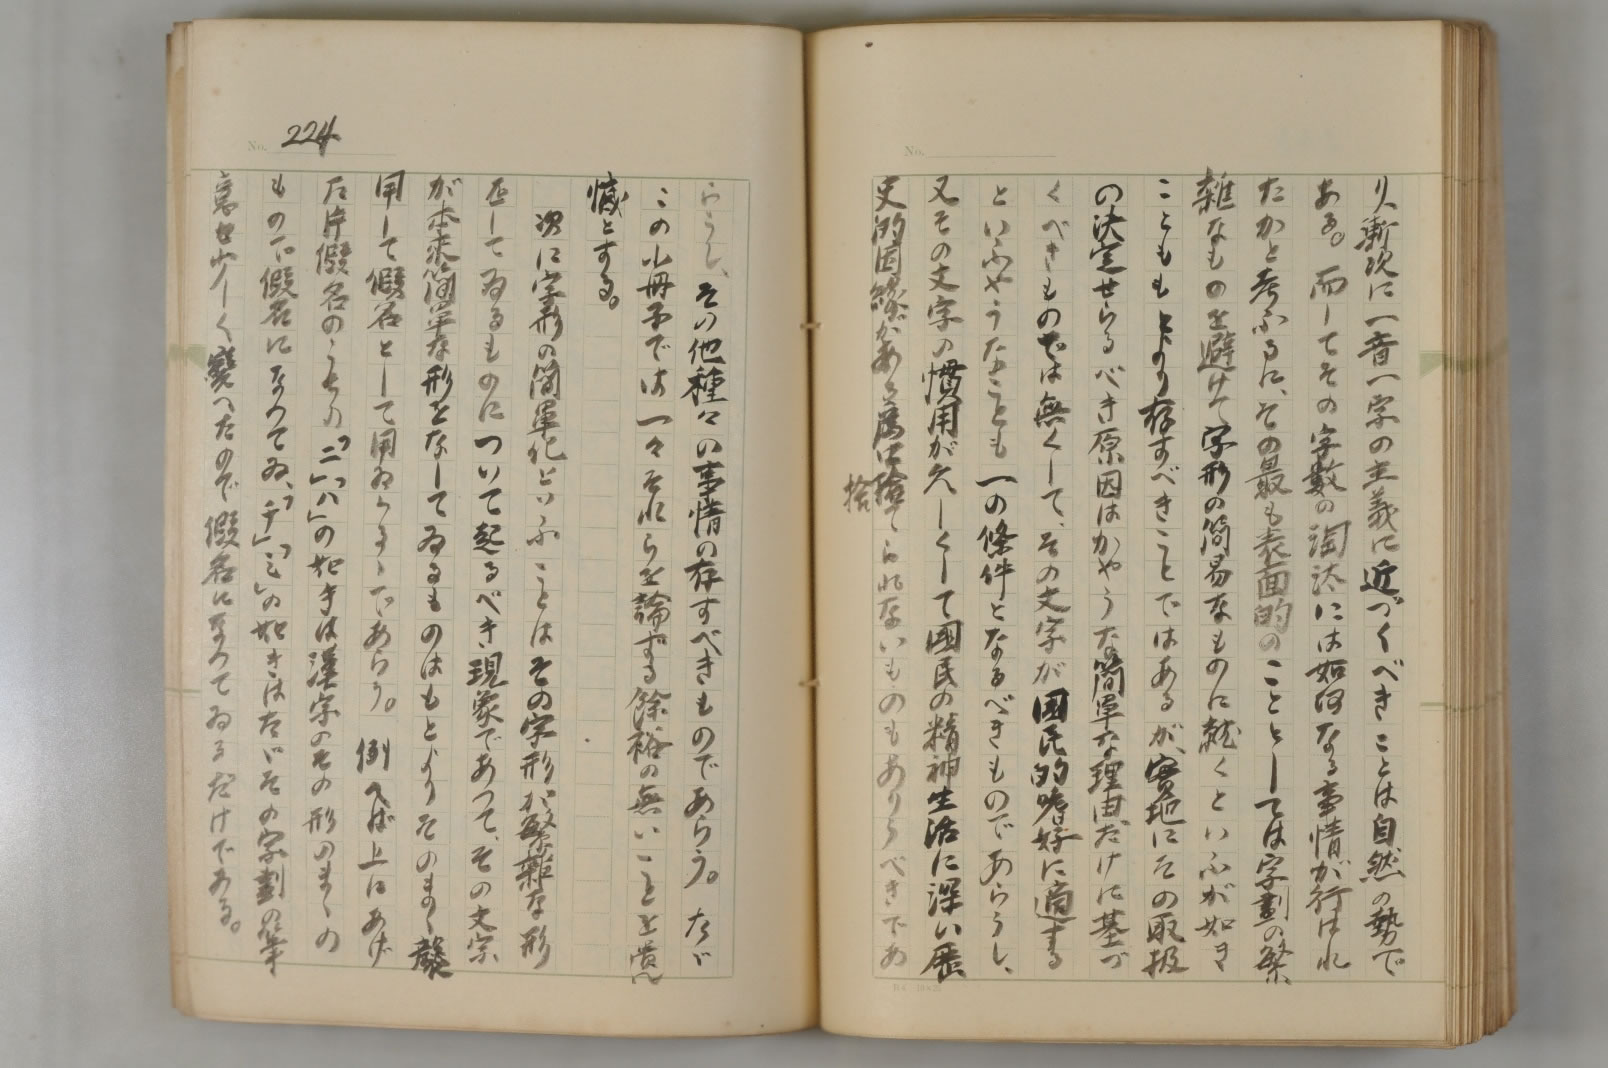 り、漸次に一音一字の主義に近づくべきことは自然の勢で
ある。而してその字數の淘汰には如何なる事情が行はれ
たかと考ふるに、その最も表面的のこととしては字劃の繁
雜なものを避けて字形の簡易なものに就くといふが如き
こともとより存すべきことではあるが、實地にその取扱
の決定せらるべき原因はかやうな簡單な理由だけに基づ
くべきものでは無くして、その文字が國民的嗜好に適する
といふやうなことも一の條件となるべきものであらうし、
又その文字の慣用が久しくして國民の精神生活に深い歷
史的因緣がある爲に捨てられないものもありうべきであ
捨
No. 224
らうし、その他種々の事情の存すべきものであらう。たゞ
この小冊子では一々それらを論ずる餘裕の無いことを遺
憾とする。
次に字形の簡單化といふことはその字形が繁雜な形
をしてゐるものについて起るべき現象であつて、その文字
が本來簡單な形をなしてゐるものはもとよりそのまゝ襲
用して假名として用ゐらるゝであらう。例へば上にあげ
た片假名のうちの「ニ」「ハ」の如きは漢字のその形のまゝの
もので假名になつてゐ、「チ」「ミ」の如きはたゞその字劃の筆
意を少しく變へたので假名になつてゐるだけである。